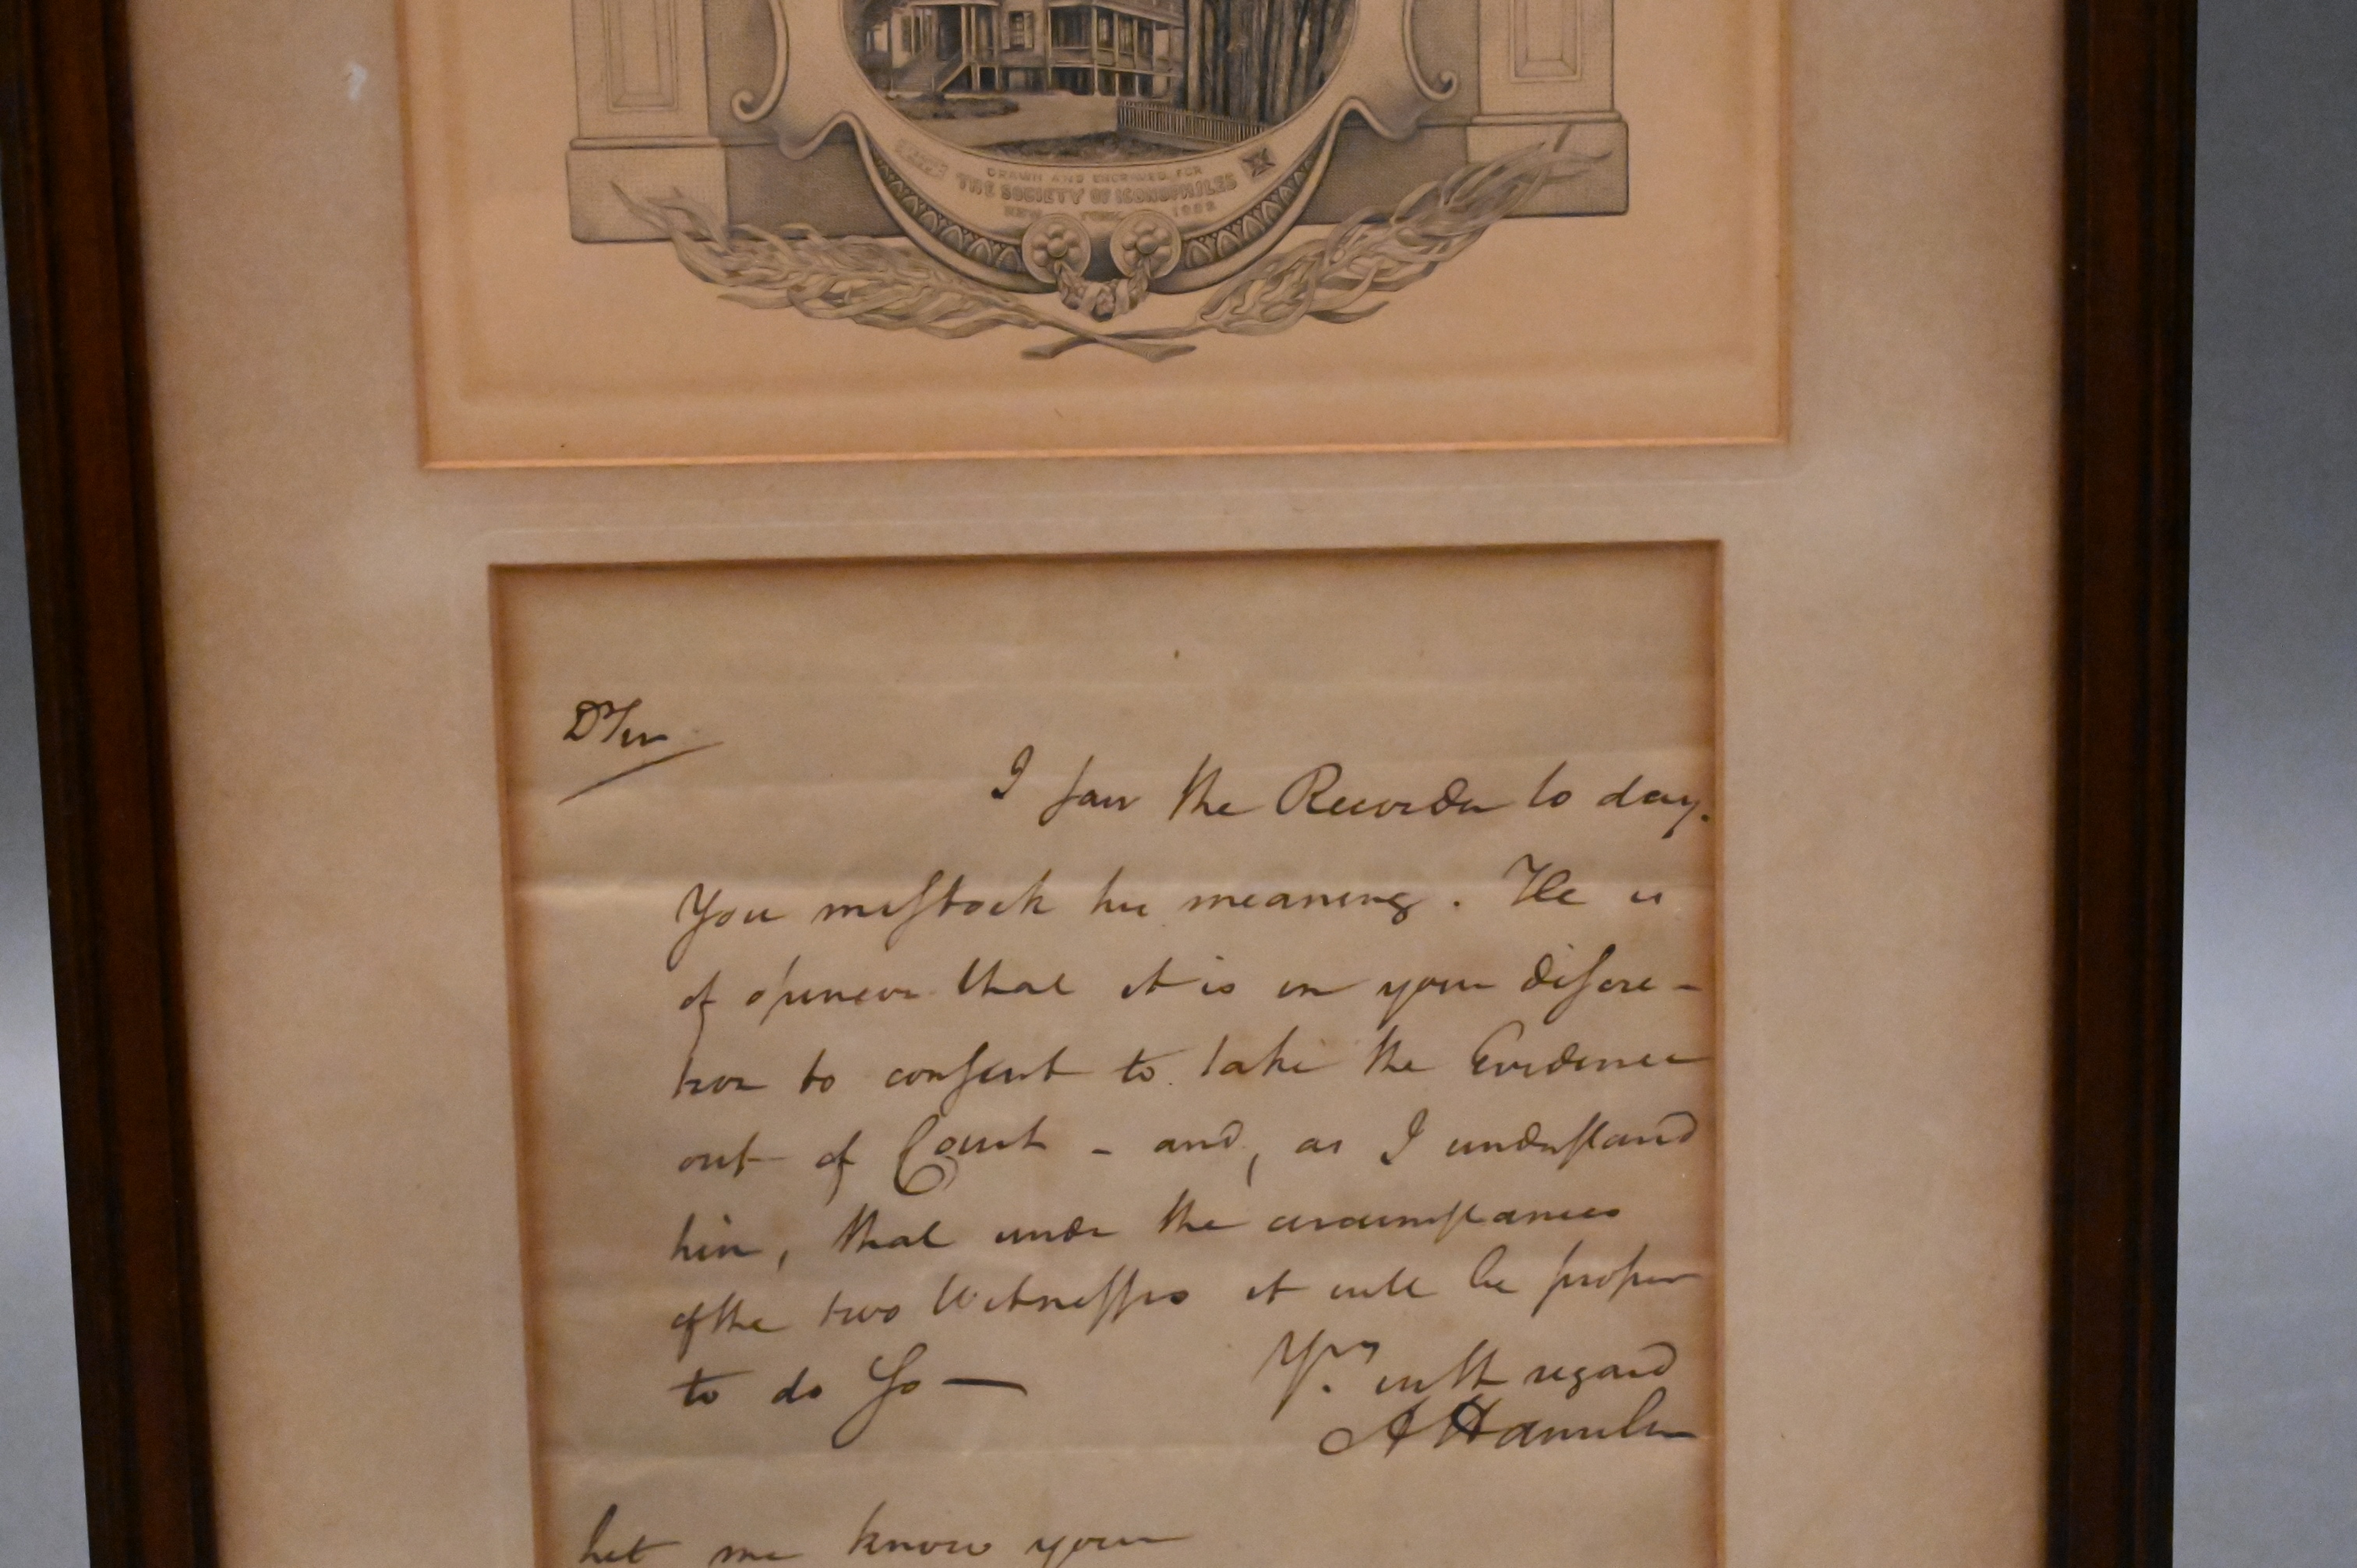 DRAWN AND ENGRAVED FOR
THE SOCIETY OF ICONOPHILES
NEW YORK
Dr Sir
I saw the Recorder to day.
You mistook his meaning. He is
of opinion that it is in your discre-
tion to consent to take the Evidence
out of Court - and, as I understand
him, that under the circumstances
of the two Witnesses it will be proper
to do so —
Yrs. with regard
A Hamilton
Let me know your